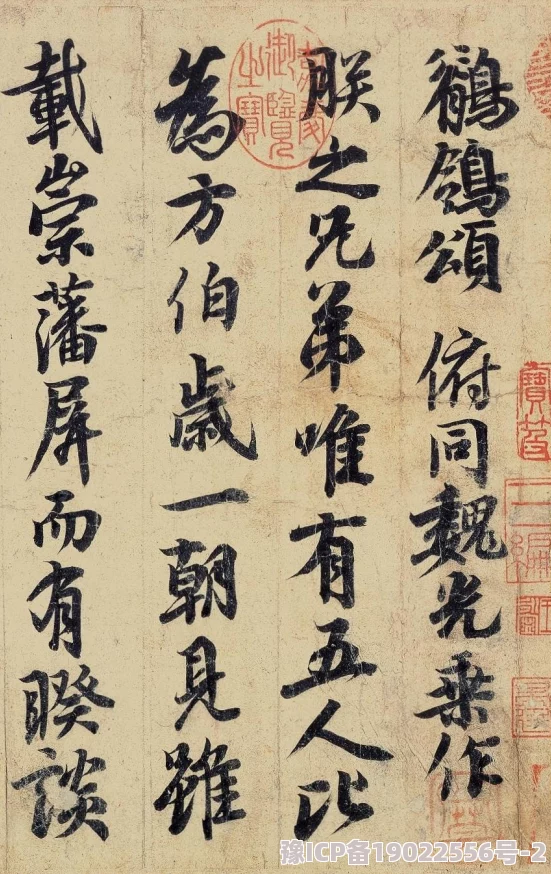 鶺鴒頌 俯同魏光乘作
朕之兄弟唯有五人比
為方伯歲一朝見雖
載崇藩屏而有睽談
嘉慶御覽之寶
豫ICP备19022556号-2